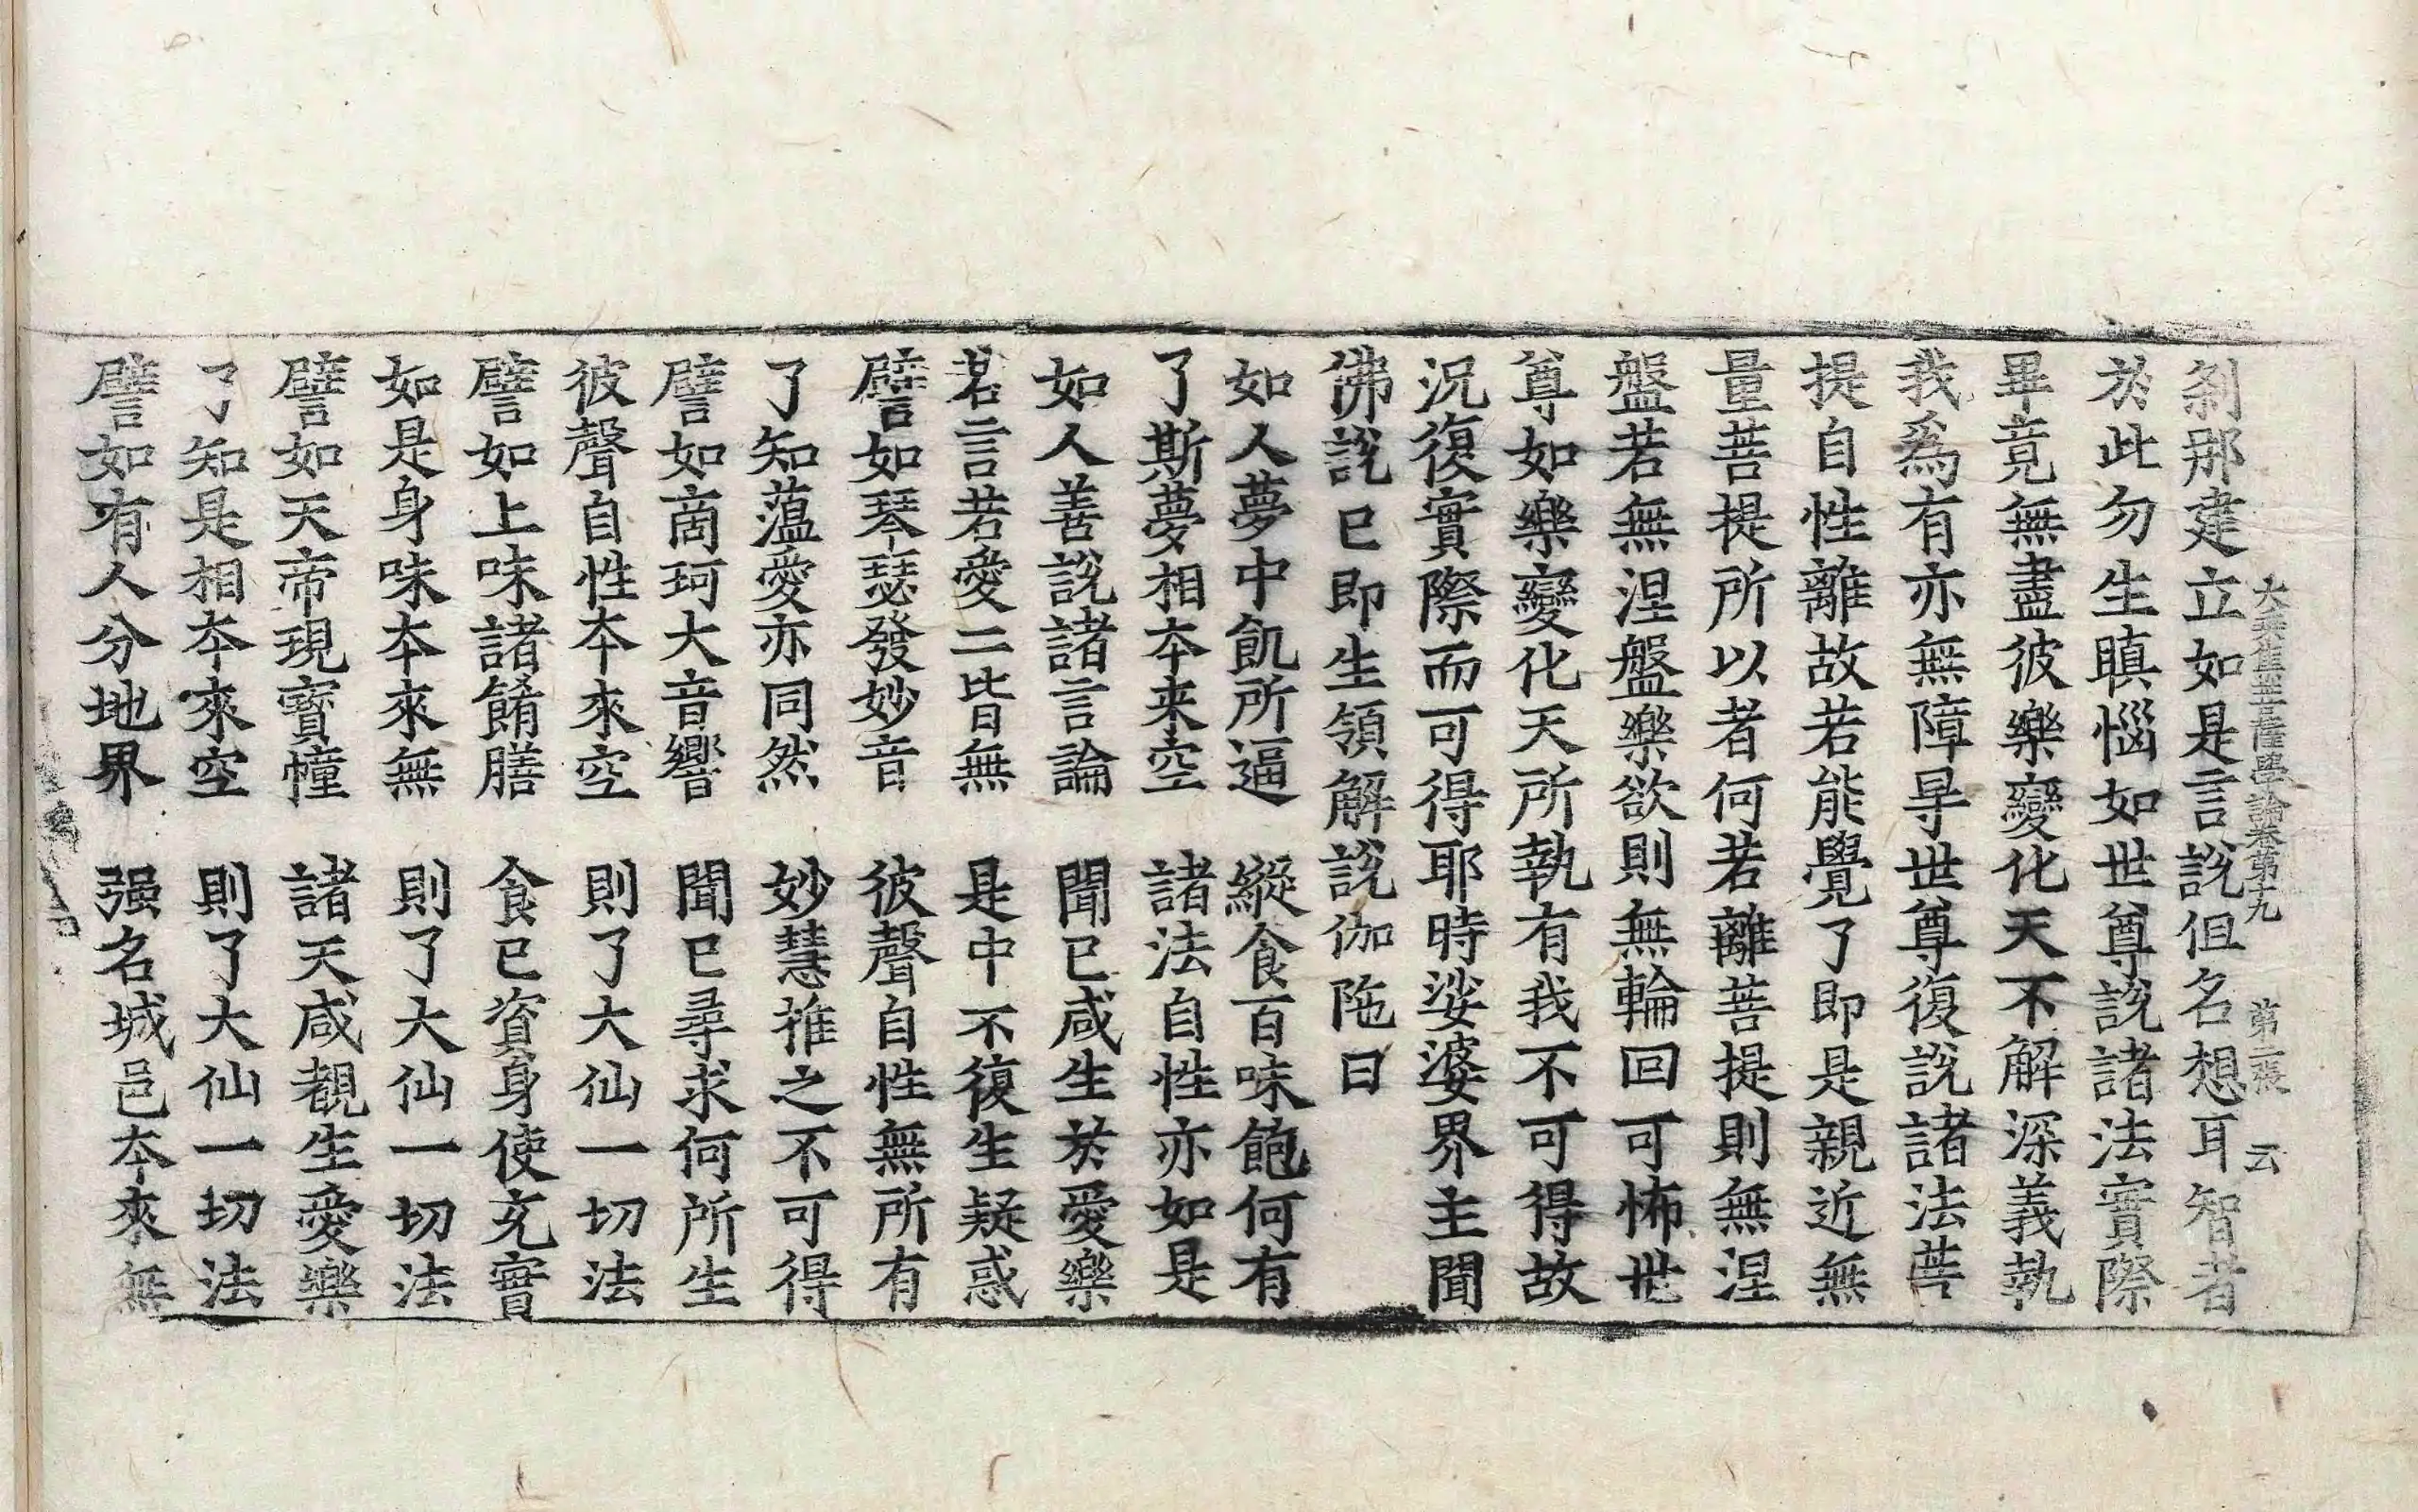 大乘集菩薩學論卷第十九 第二張 云
刹那建立如是言說但名想耳智者
於此勿生瞋惱如世尊說諸法實際
畢竟無盡彼樂變化天不解深義執
我爲有亦無障㝵世尊復說諸法菩
提自性離故若能覺了即是親近無
量菩提所以者何若離菩提則無涅
盤若無涅盤樂欲則無輪回可怖世
尊如樂變化天所執有我不可得故
況復實際而可得耶時娑婆界主聞
佛說已即生領解說伽陁曰
如人夢中飢所逼 縱食百味飽何有
了斯夢相夲来空 諸法自性亦如是
如人善說諸言論 聞已咸生於愛樂
若言若愛二皆無 是中不復生疑惑
譬如琴瑟發妙音 彼聲自性無所有
了知蕰愛亦同然 妙慧推之不可得
譬如啇珂大音響 聞已尋求何所生
彼聲自性夲來空 則了大仙一切法
譬如上味諸餚膳 食已資身使充實
如是身味夲來無 則了大仙一切法
譬如天帝現寶幢 諸天咸覩生愛樂
了知是相夲來空 則了大仙一切法
譬如有人分地界 强名城邑夲來無